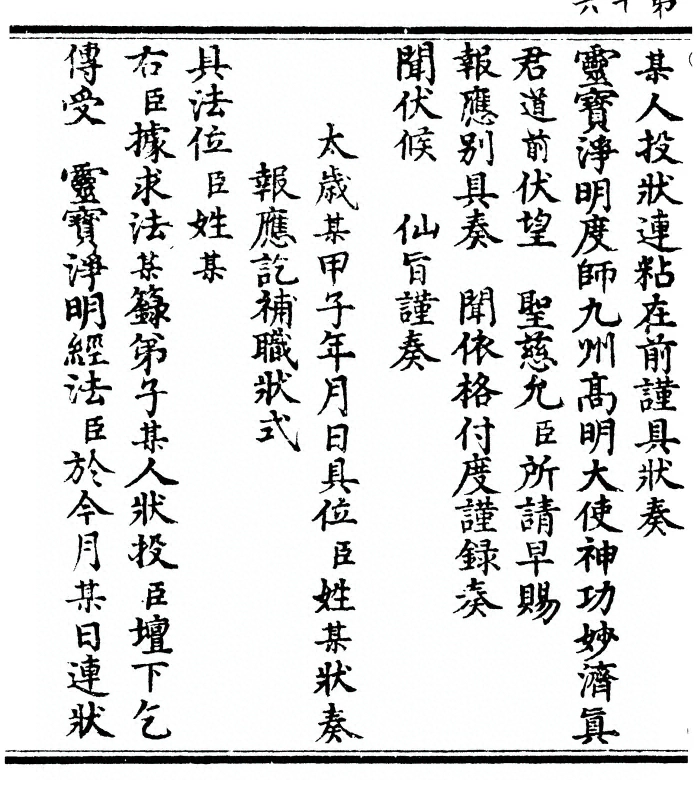 第十六
某人投狀連粘在前謹具狀奏
靈寶淨明度師九州髙明大使神功妙濟眞
君道前伏望　聖慈允臣所請早賜
報應別具奏　聞依格付度謹録湊
聞伏候　仙旨謹奏
太歲某甲子年月日具位臣姓某狀奏
報應訖補職狀式
具法位臣姓某
右臣據求法某籙弟子某人狀投臣壇下乞
傳受　靈寶淨明經法臣於今月某日連狀